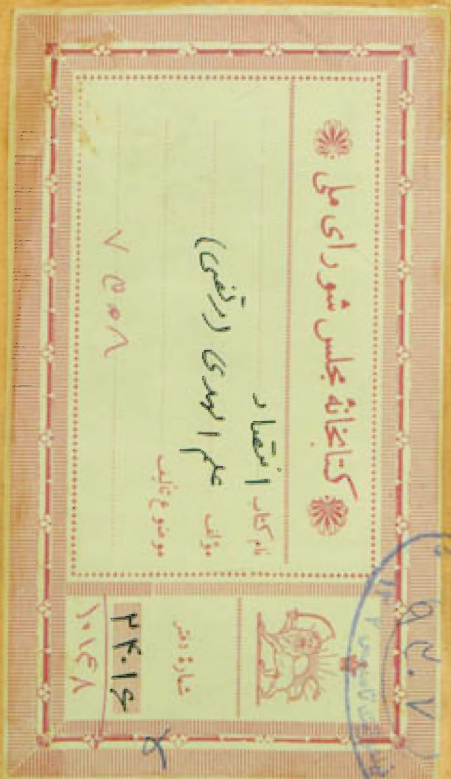 کتابخانهٔ مجلس شورای ملی
نام کتاب انتصار
مؤلف علم الهدی (مرتضی)
موضوع تألیف
شمارهٔ دفتر
۲۴۰۱۶
۱۰۱۴۸
۷۵۰۸